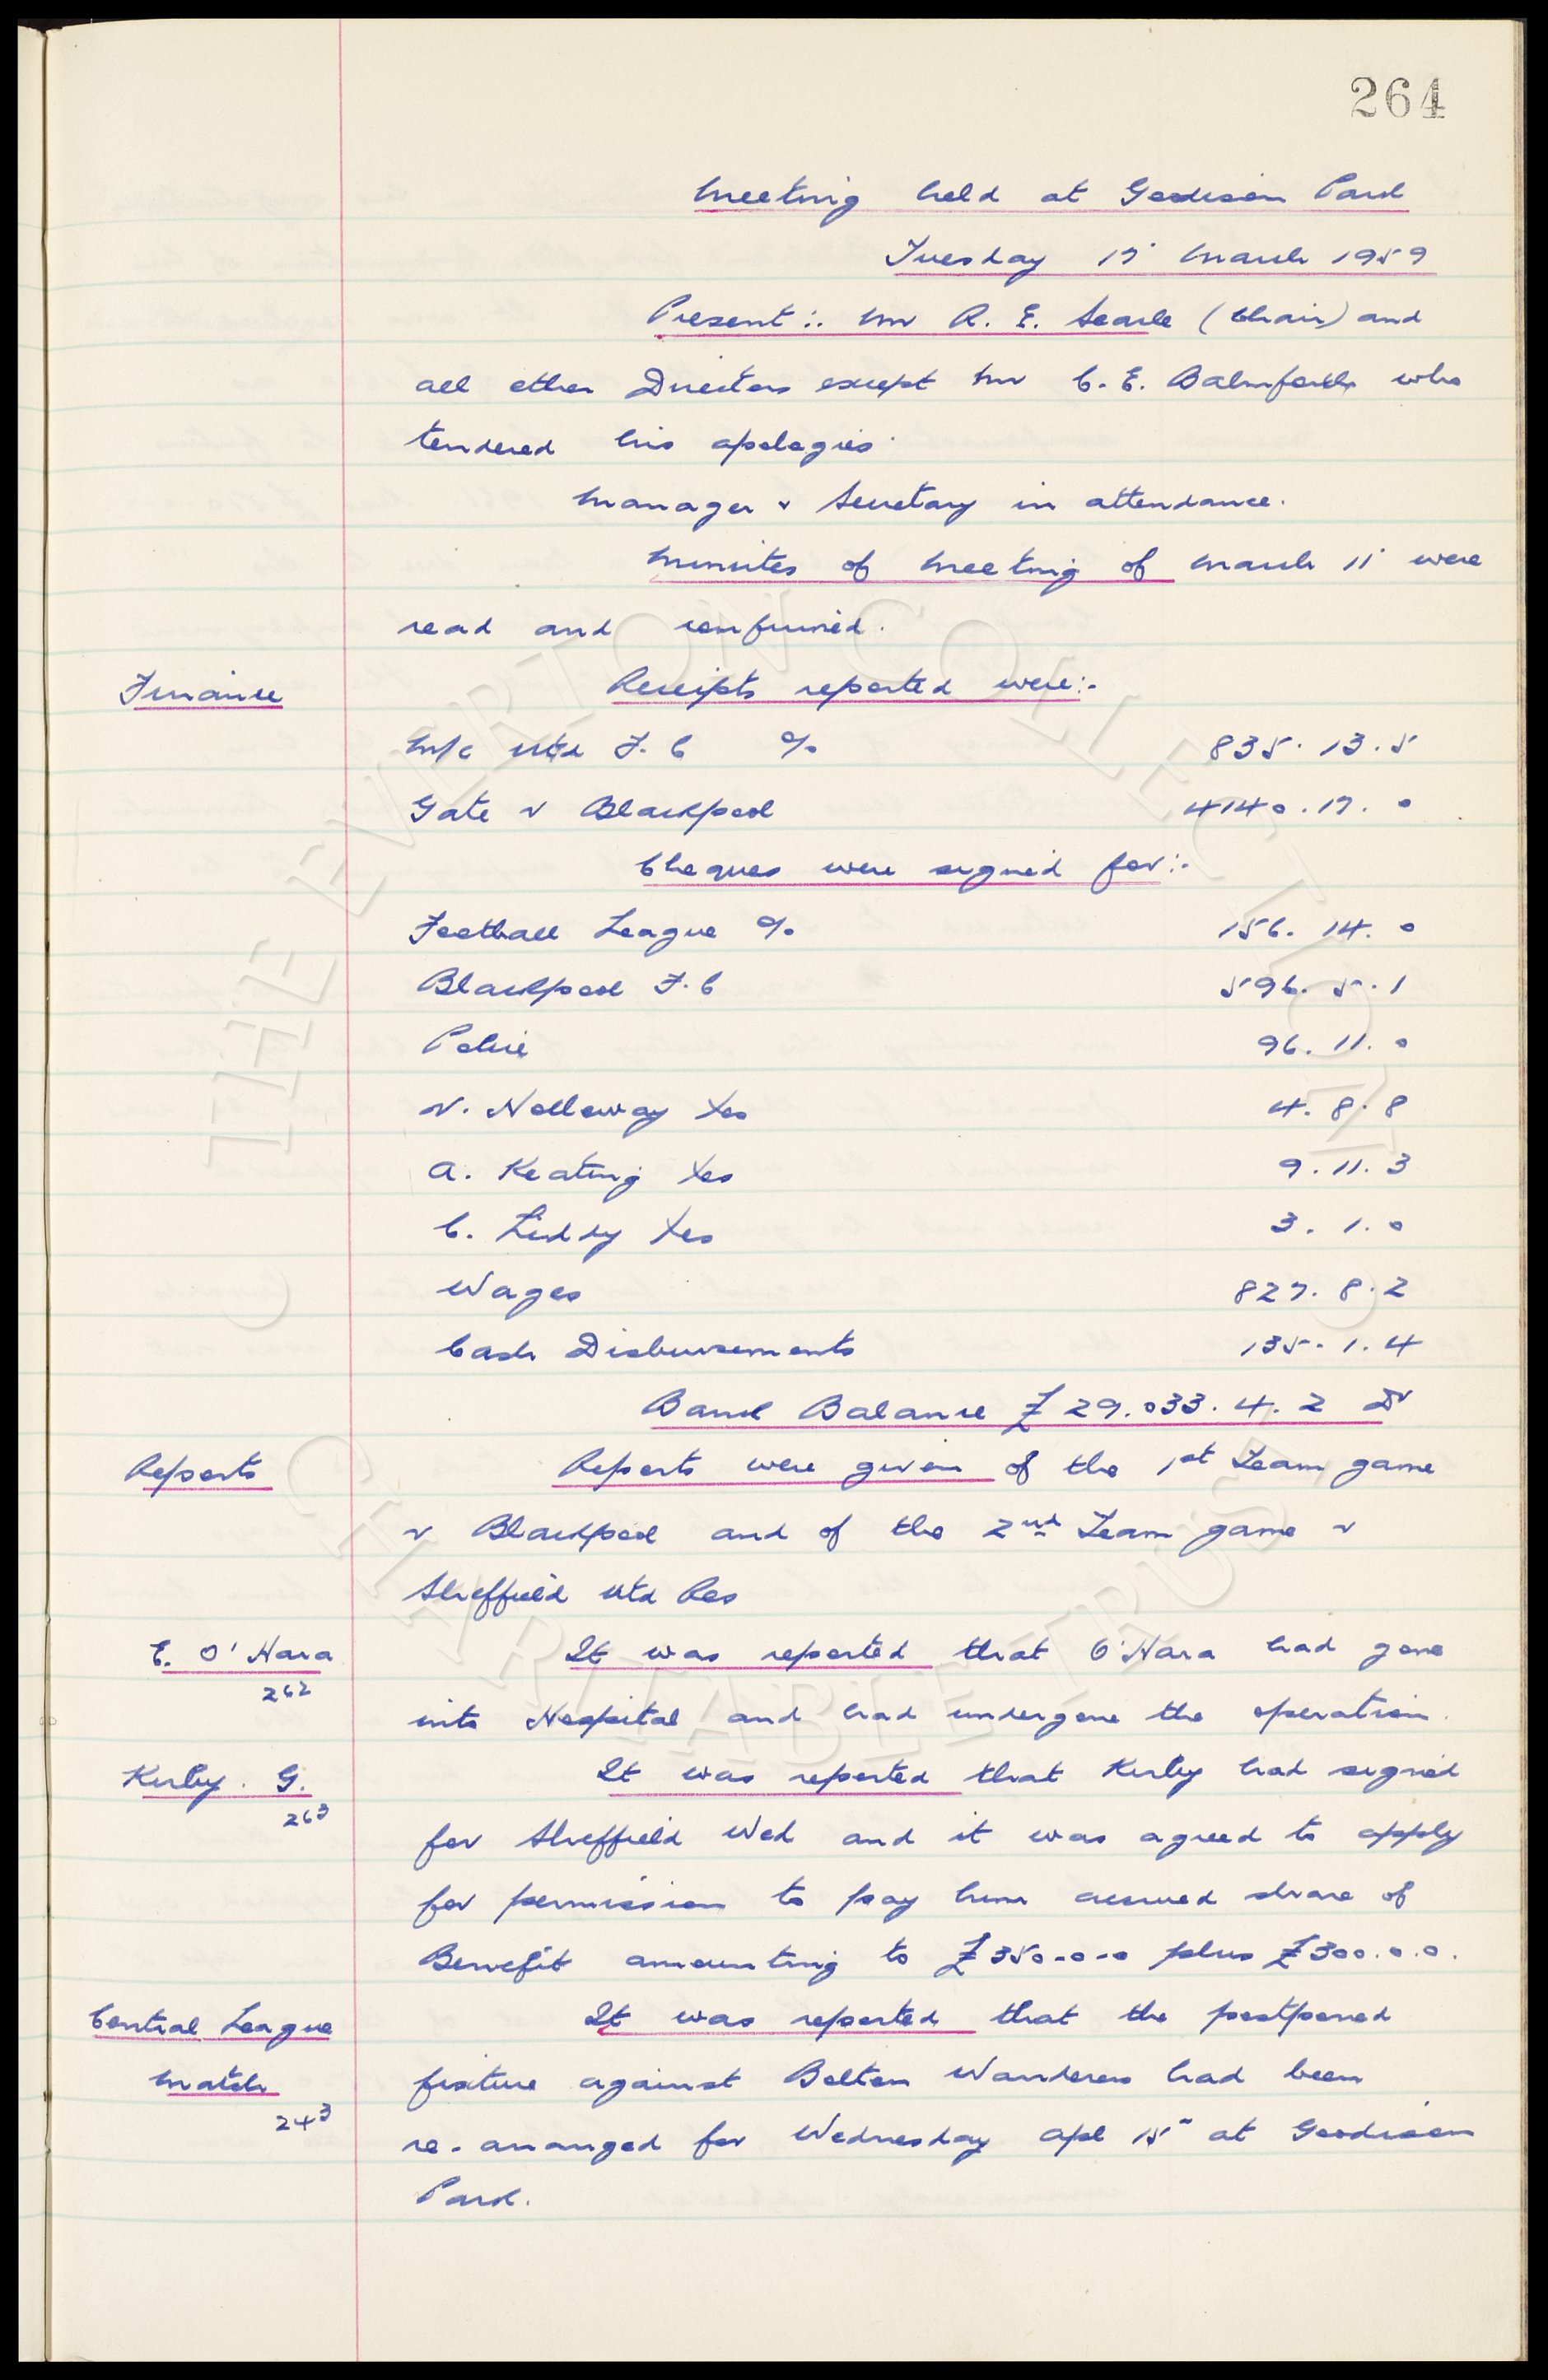 264
Meeting held at Goodison Park
Tuesday 17' March 1959
Present:. Mr R. E. Searle (Chair) and
all other Directors except Mr C. E. Balmforth who
tendered his apologies.
Manager & Secretary in attendance.
Minutes of Meeting of March 11' were
read and confirmed.
Finance Receipts reported were:-
M/c Utd F.C % 835. 13. 5
Gate v Blackpool 4140. 17. 0
Cheques were signed for:-
Football League % 156. 14. 0
Blackpool F.C 596. 5. 1
Police 96. 11. 0
V. Holloway Xes 4. 8. 8
A. Keating Xes 9. 11. 3
C. Liddy Xes 3. 1. 0
Wages 827. 8. 2
Cash Disbursements 135. 1. 4
Bank Balance £29.033. 4. 2 Dr
Reports Reports were given of the 1st Team game
v Blackpool and of the 2nd Team game v
Sheffield Utd Res
E. O'Hara It was reported that O'Hara had gone
262
into Hospital and had undergone the operation.
Kirby. G. It was reported that Kirby had signed
263
for Sheffield Wed and it was agreed to apply
for permission to pay him accrued share of
Benefit amounting to £350-0-0 plus £300.0.0.
Central League It was reported that the postponed
Match fixture against Bolton Wanderers had been
243
re-arranged for Wednesday Apl 15" at Goodison
Park.
THE EVERTON COLLECTION
CHARITABLE TRUST